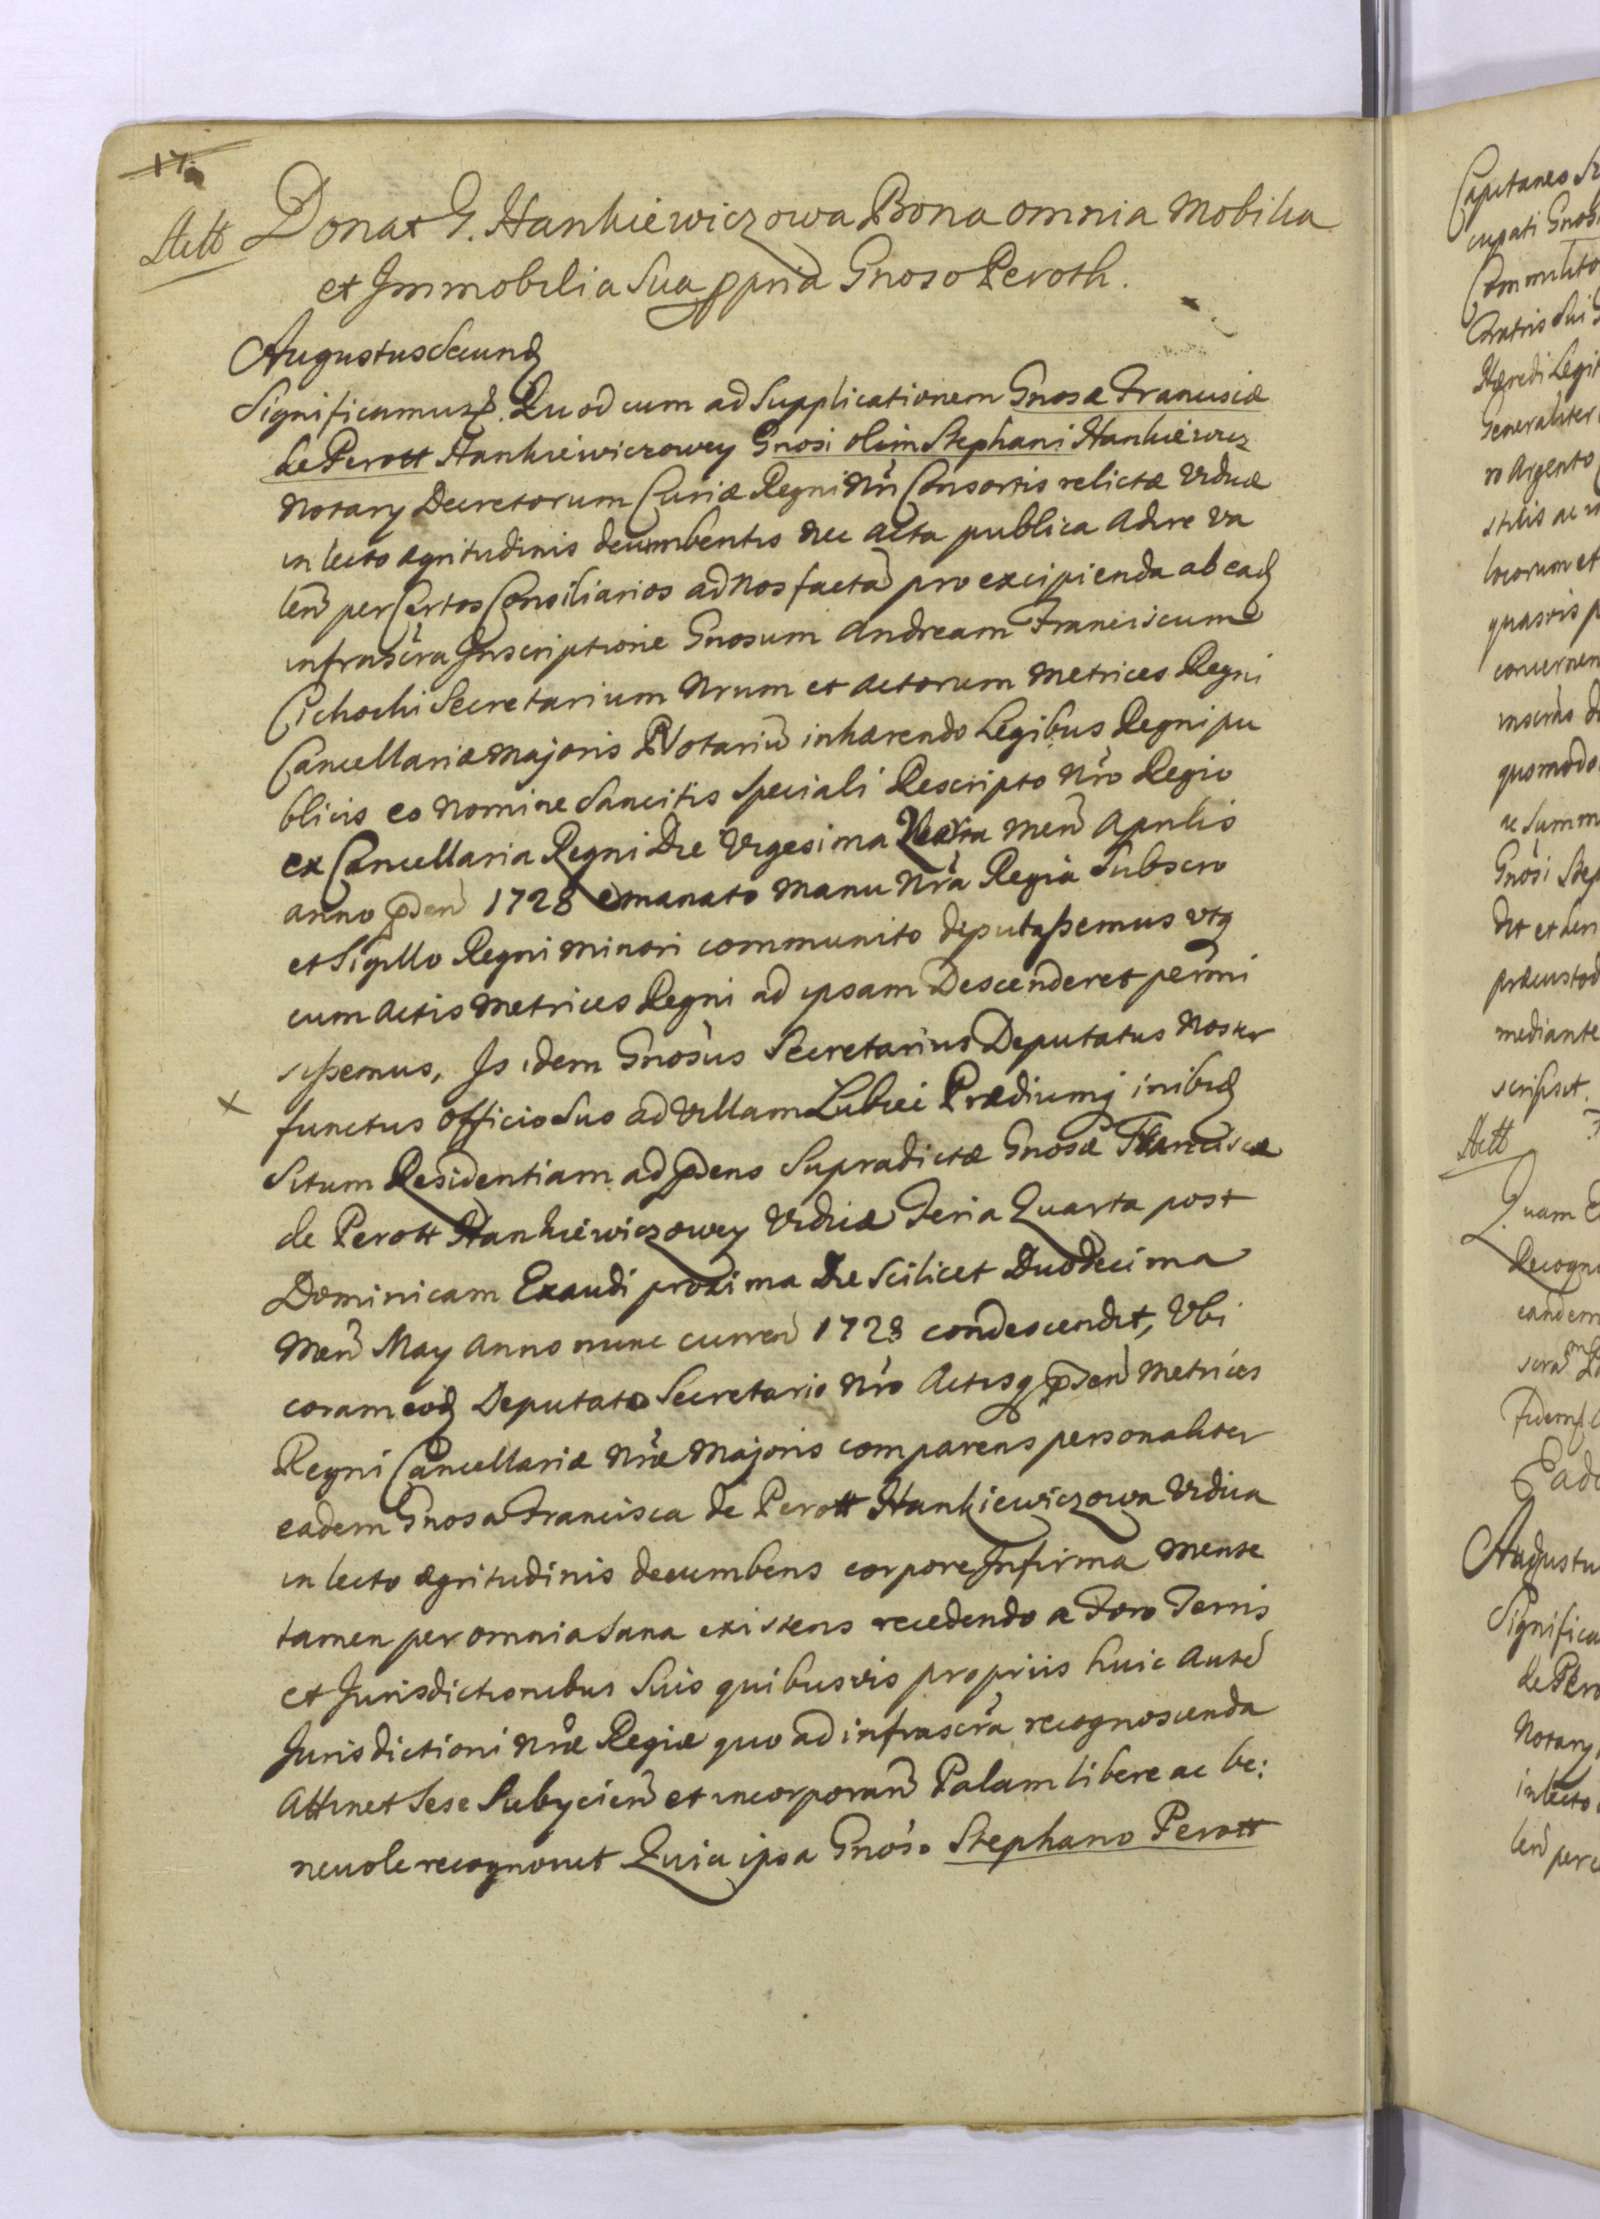 17
Actt Donat G. Hankiewiczowa Bona omnia Mobilia
et Immobilia sua ppria Gnoso Peroth.
Augustus Secund
Significamus Quod cum ad Supplicationem Gnosæ Franciscæ
de Perott Hankiewiczowey Gnosi olim Stephani Hankiewicz
Notary Decretorum Curiæ Regni Nri Consortis relictæ Viduæ
in lecto ægritudinis decumbentis nec acta publica adire va
len per Certos Consiliarios ad Nos facta pro excipienda ab ead
infrascra Inscriptione Gnosum Andream Franciscum
Cichocki Secretarium Nrum et Actorum Metrices Regni
Cancellariæ Majoris PNotariu inhærendo Legibus Regni pu
blicis eo nomine Sancitis Speciali Rescripto Nro Regio
ex Cancellaria Regni Die Vigesima men Aprilis
anno pden 1728 emanato manu Nra Regia Subscro
et Sigillo Regni minori communito deputassemus vtq
cum Actis Metrices Regni ad ipsam Descenderet permi
sissemus, Is idem Gnosus Secretarius Deputatus Noster
x functus officio suo ad Villam Lubiei Prædiumq inibid
situm Residentiam ad pdens Supradictæ Gnosæ Franciscæ
de Perott Hankiewiczowey Viduæ Feria Quarta post
Dominicam Exaudi proxima Die Scilicet Duodecima
Men May Anno nunc curren 1728 condescendit, Vbi
coram eod Deputato Secretario Nro Actisq pden Metrices
Regni Cancellariæ Nræ Majoris comparens personaliter
eadem Gnosa Francisca de Perott Hankiewiczowa Vidua
in lecto ægritudinis decumbens corpore Infirma mente
tamen per omnia sana existens recedendo a Foro Terris
et Jurisdictionibus Suis quibusvis propriis huic aute
Jurisdictioni Nræ Regiæ quo ad infrascra recognoscenda
Attinet Sese Subycien et incorporan Palam libere ac be:
nevole recognovit Quia ipsa Gnoso Stephano Perott
Capitaneo
cupati Gnosi
Commilito
Fratris Sui
Hæredi Legit
Generaliter
ro Argento
locorum et
quasvis p
concernen
quomodo
ac Summ
Gnosi Step
dit et
præcustod
mediante
scripsit.
Actt
Quam
Recogn
eandem
scra
Fidem
Ead
Augustu
Significa
de Pero
Notary
in lecto
len per c